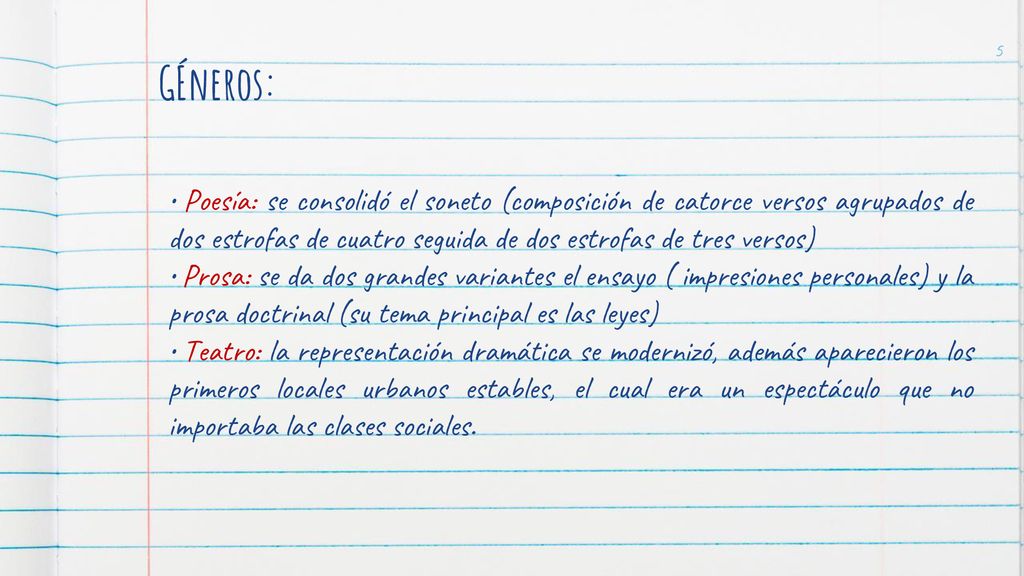 5
GÉNEROS:
• Poesía: se consolidó el soneto (composición de catorce versos agrupados de
dos estrofas de cuatro seguida de dos estrofas de tres versos)
• Prosa: se da dos grandes variantes el ensayo ( impresiones personales) y la
prosa doctrinal (su tema principal es las leyes)
• Teatro: la representación dramática se modernizó, además aparecieron los
primeros locales urbanos estables, el cual era un espectáculo que no
importaba las clases sociales.